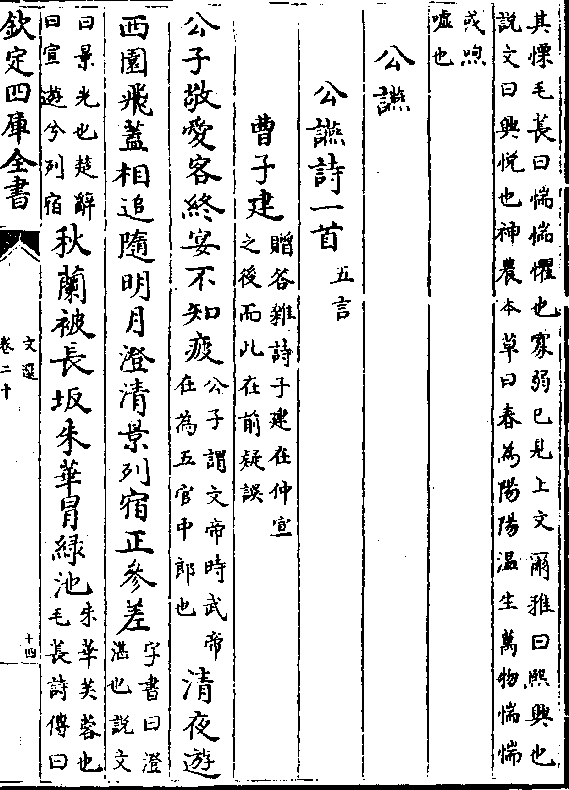 其慄毛萇曰惴惴懼也寡弱已見上文爾雅曰熙興也
説文曰興悅也神農本草曰春為陽陽温生萬物惴惴
或煦
嘘也
公讌
公讌詩一首
五言
曹子建
贈答雜詩子建在仲宣
之後而此在前疑誤
公子敬愛客終宴不知疲
公子謂文帝時武帝
在為五官中郎也
清夜遊
西園飛蓋相追隨明月澄清景列宿正參差
字書曰澄
湛也説文
曰景光也楚辭
曰宣遊兮列宿
秋蘭被長坂朱華冒緑池
朱華芙蓉也
毛萇詩傳曰
欽定四庫全書
文選
卷二十
十四